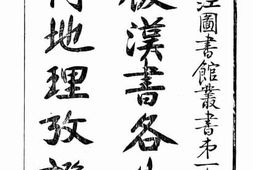 江圖書館叢書弟一
後漢書各
地理攷證